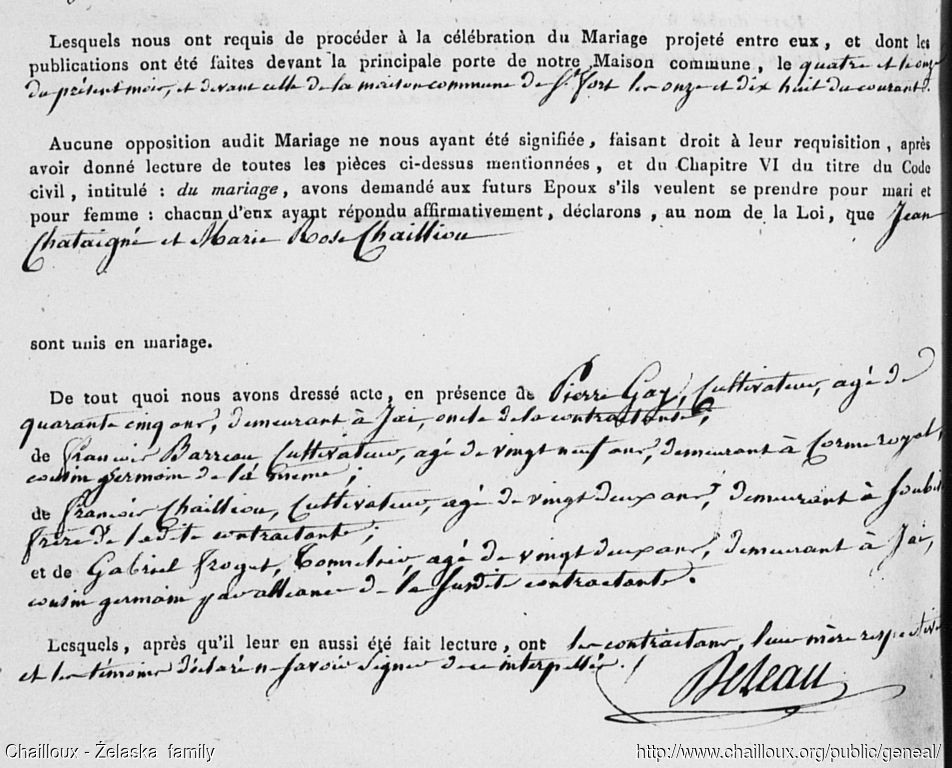 Lesquels nous ont requis de procéder à la célébration du Mariage projeté entre eux, et dont les
publications ont été faites devant la principale porte de notre Maison commune, le quatre et le onze
du présent mois, et devant celle de la maison commune de St. Fort les onze et dix huit du courant.
Aucune opposition audit Mariage ne nous ayant été signifiée, faisant droit à leur requisition, après
avoir donné lecture de toutes les pièces ci-dessus mentionnées, et du Chapitre VI du titre du Code
civil, intitulé : du mariage, avons demandé aux futurs Epoux s'ils veulent se prendre pour mari et
pour femme : chacun d'eux ayant répondu affirmativement, déclarons, au nom de la Loi, que Jean
Chataigné et Marie Rose Chailliou
sont unis en mariage.
De tout quoi nous avons dressé acte, en présence de Pierre Gay, Cultivateur, agé de
quarante cinq ans, demeurant à Jai, oncle de la contractante,
de François Barreau Cultivateur, agé de vingt neuf ans, demeurant à Corme royal,
cousin germain de la même ;
de François Chailliou, Cultivateur, agé de vingt deux ans, demeurant à
frère de ladite contractante ;
et de Gabriel Froget, Tonnelier, agé de vingt deux ans, demeurant à Jai,
cousin germain par alliance de la susdite contractante.
Lesquels, après qu'il leur en aussi été fait lecture, ont les contractans, leur mère respective
et les témoins déclaré ne savoir signer de ce interpellés.
Chailloux - Żelaska family
http://www.chailloux.org/public/geneal/